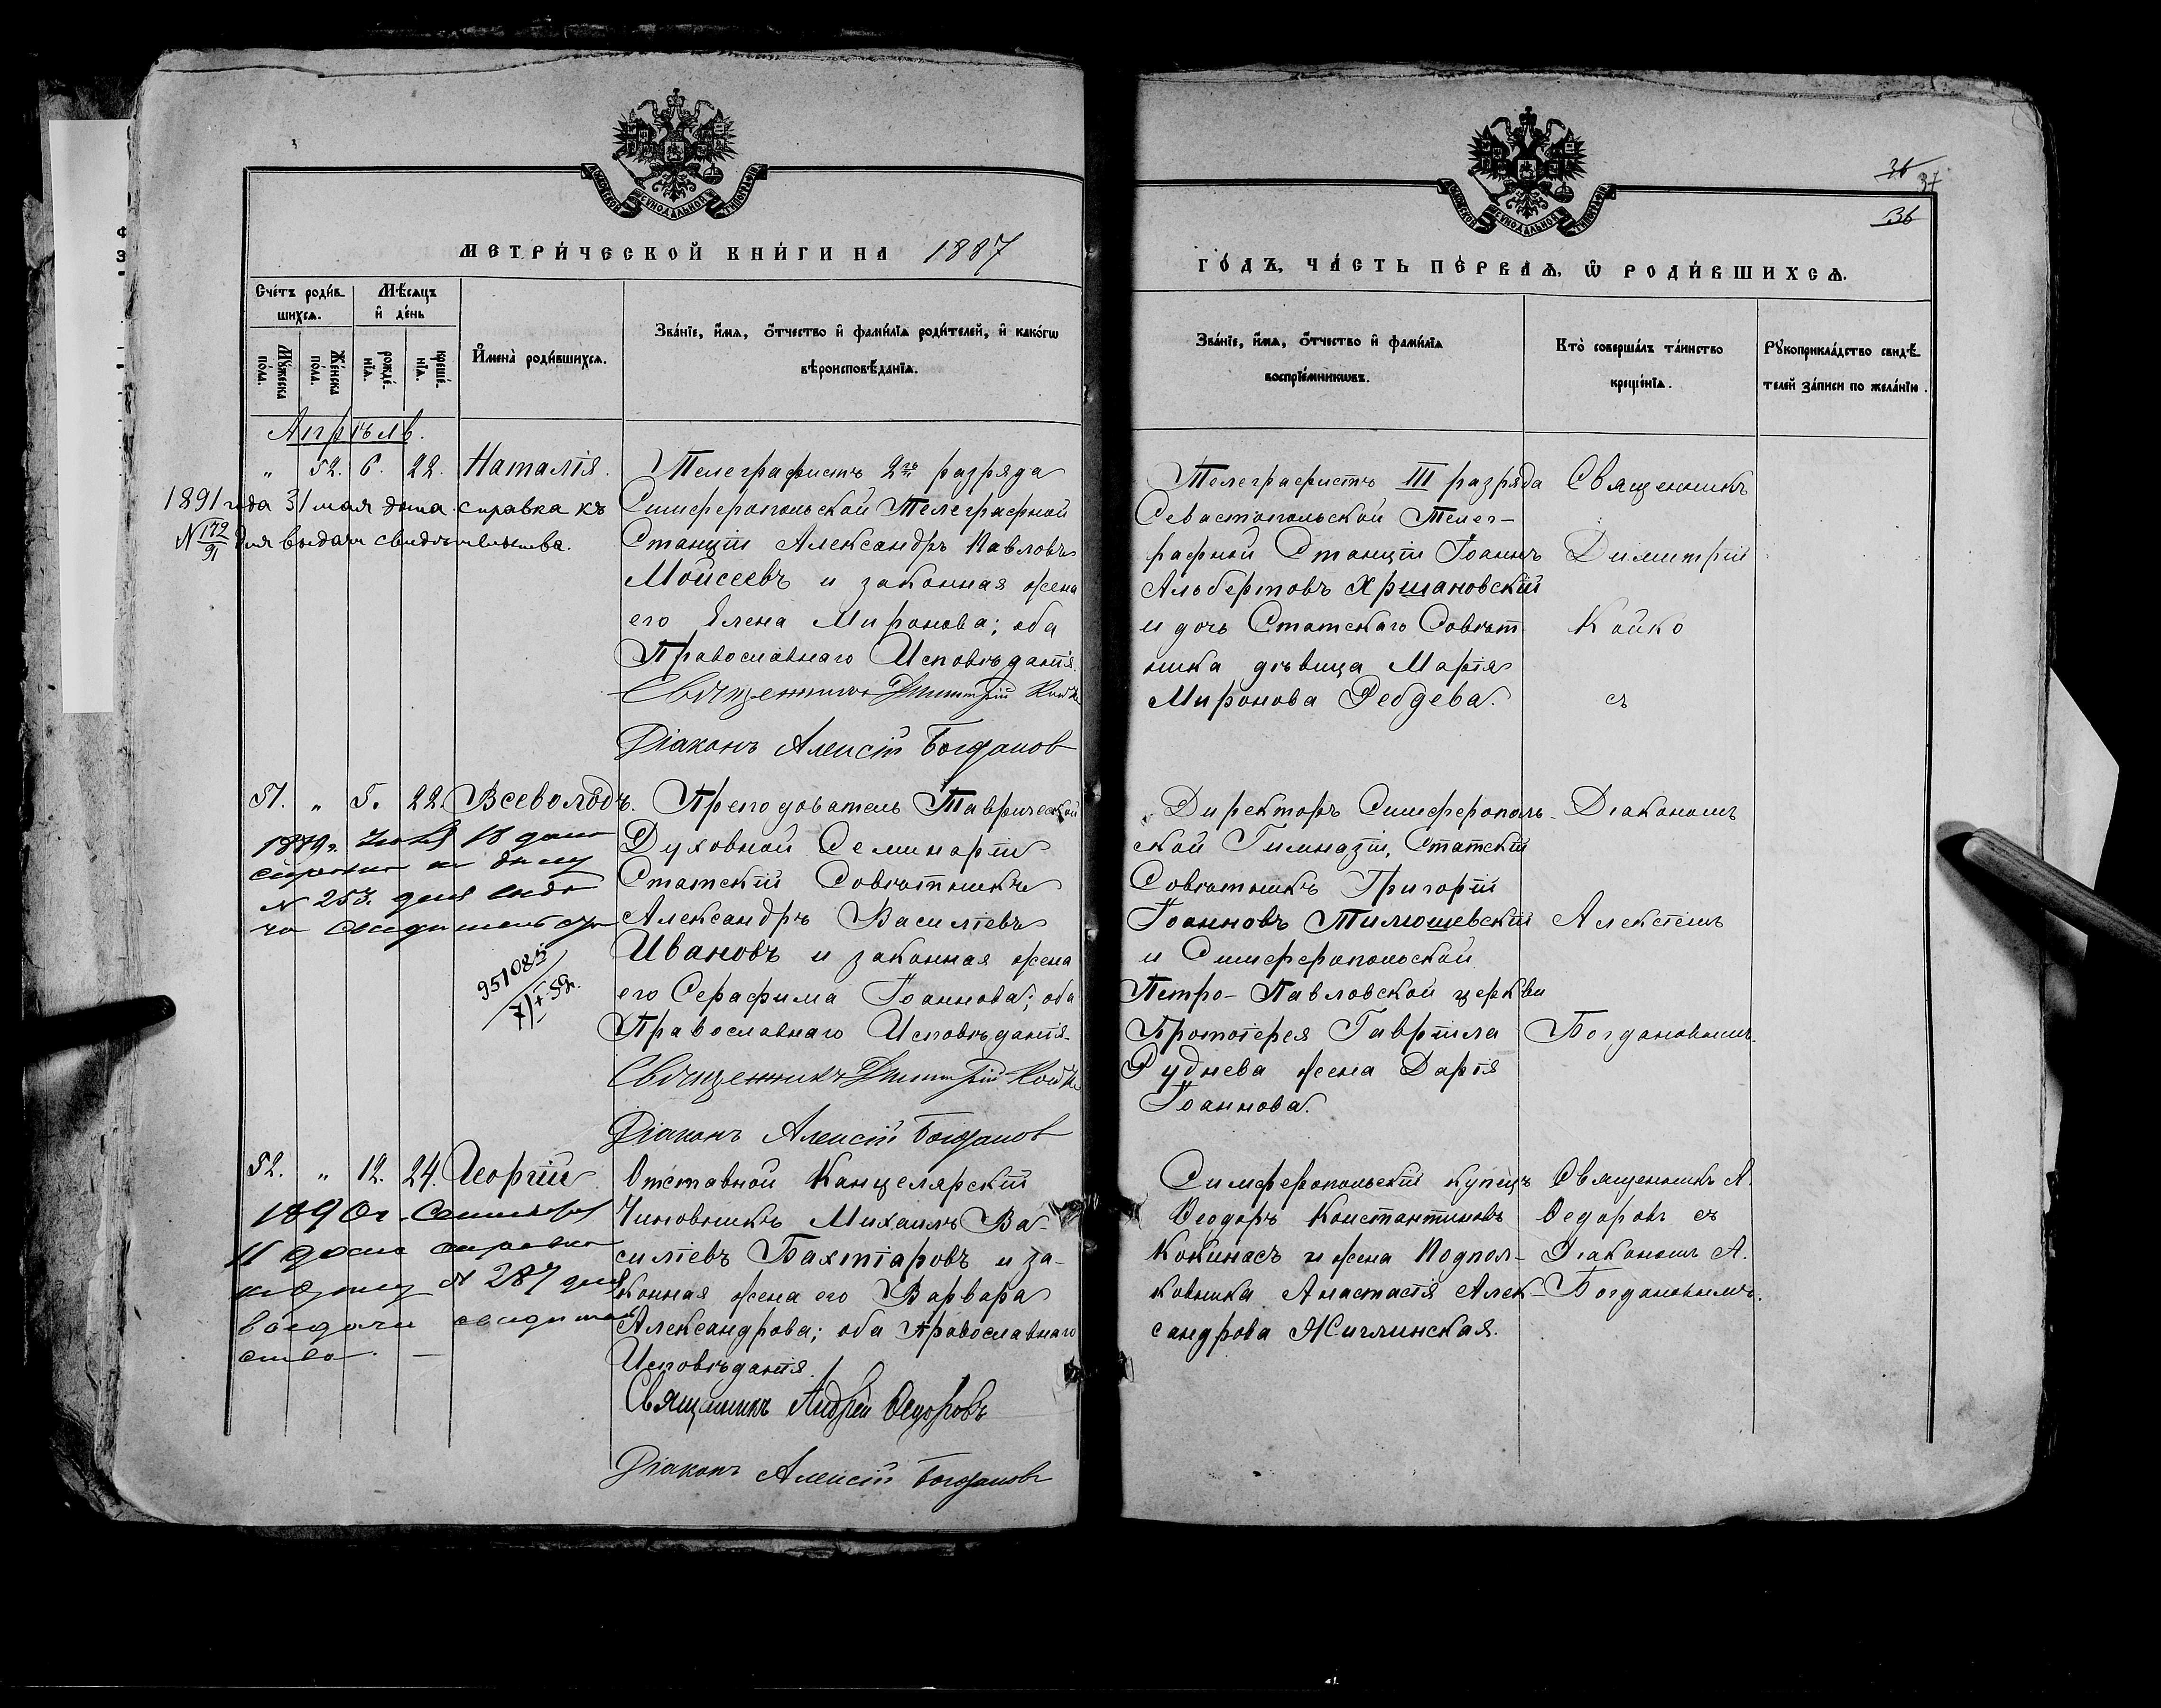 36
37
36
МЕТРИ́ЧЕСКОЙ КНИ́ГИ НА 1887
ГО́ДЪ, ЧА́СТЬ ПЕ́РВАѦ, Ѡ҆ РОДИ́ВШИХСѦ.
Сче́тъ роди́в-
шихсѧ.
Мѣ́сѧцъ
и҆ де́нь
Мꙋ́жеска по́ла.
Же́нска по́ла.
рожде́-
нїѧ.
креще́-
нїѧ.
И҆мена̀ роди́вшихсѧ.
Зва́нїе, и҆́мѧ, ѻ҆́тчество и҆ фами́лїѧ роди́телей, и҆ како́гѡ
вѣроисповѣ́данїѧ.
Зва́нїе, и҆́мѧ, ѻ҆́тчество и҆ фами́лїѧ
воспрїе́мникѡвъ.
Кто̀ соверша́лъ та́инство
креще́нїѧ.
Рꙋкоприкла́дство свидѣ́-
телей за́писи по жела́нїю.
Апрѣль.
" 52. 6. 22. Наталія.
1891 года 31 мая дана справка къ
N 172/91 для выдачи свидѣтельства.
Телеграфистъ 2го разряда
Симферопольской Телеграфной
Станціи Александръ Павловъ
Моисеевъ и законная жена
его Елена Миронова; оба
Православнаго Исповѣданія.
Священникъ Димитрій Койко
Діаконъ Алексій Богданов
Телеграфистъ III разряда
Севастопольской Телег-
рафной Станціи Іоаннъ
Альбертовъ Хршановскій
и дочь Статскаго Совѣт
ника дѣвица Марія
Миронова
Священникъ
Димитрій
Койко
съ
51. " 5. 22. Всеволодъ.
18 дана
справка по делу
N 253. для
951085
Преподователь Таврической
Духовной Семинаріи
Статскій Совѣтникъ
Александръ Василіевъ
Ивановъ и законная жена
его Серафима Іоаннова; оба
Православнаго Исповѣданія.
Священникъ Димитрій Койко
Діаконъ Алексій Богданов
Директоръ Симферополь-
ской Гимназіи, Статскій
Совѣтникъ Григорій
Іоанновъ Тимошевскій
и Симферопольской
Петро-Павловской церкви
Протоіерея Гавріила
Руднева жена Дарія
Іоаннова.
Діакономъ
Алексіемъ
Богдановымъ.
52. " 12. 24. Георгій
1890г. Сентября
11 дана справка
по делу N 287 для
выдачи свидетель
ства. —
Отставной Канцелярскій
Чиновникъ Михаилъ Ва-
силіевъ Бахтіаровъ и за-
конная жена его Варвара
Александрова; оба Православнаго
Исповѣданія.
Священникъ Андрей Ѳедоровъ
Діаконъ Алексій Богдановъ
Симферопольскій купецъ
Ѳеодоръ Константиновъ
Кокинасъ и жена Подпол-
ковника Анастасія Алек-
сандрова Жиглинская.
Священникъ А.
Ѳедоровъ съ
Діакономъ А.
Богдановымъ.